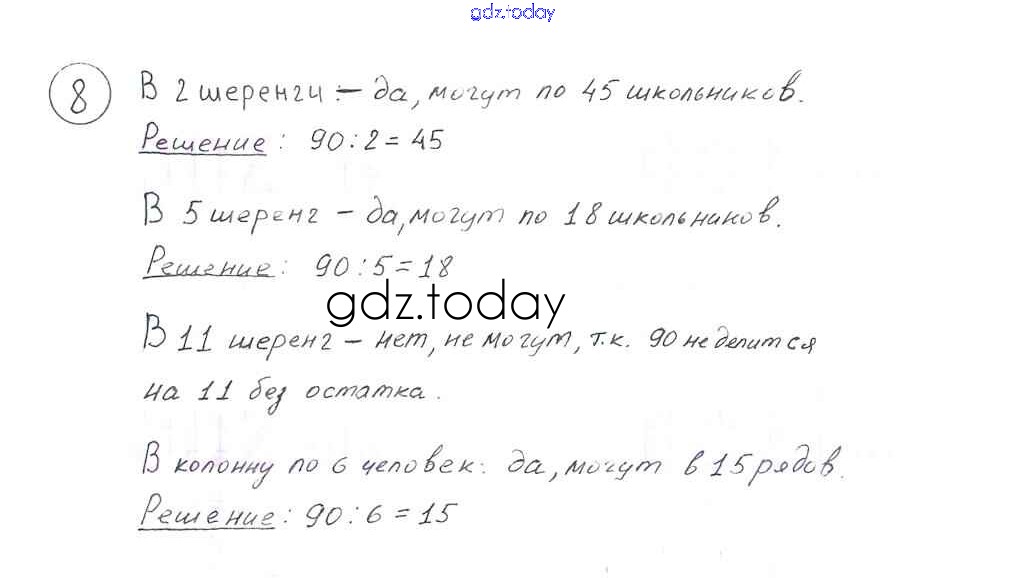 gdz.today
8 В 2 шеренги – да, могут по 45 школьников.
Решение: 90:2=45
В 5 шеренг – да, могут по 18 школьников.
Решение: 90:5=18
gdz.today
В 11 шеренг – нет, не могут, т.к. 90 не делится
на 11 без остатка.
В колонну по 6 человек: да, могут в 15 рядов.
Решение: 90:6=15